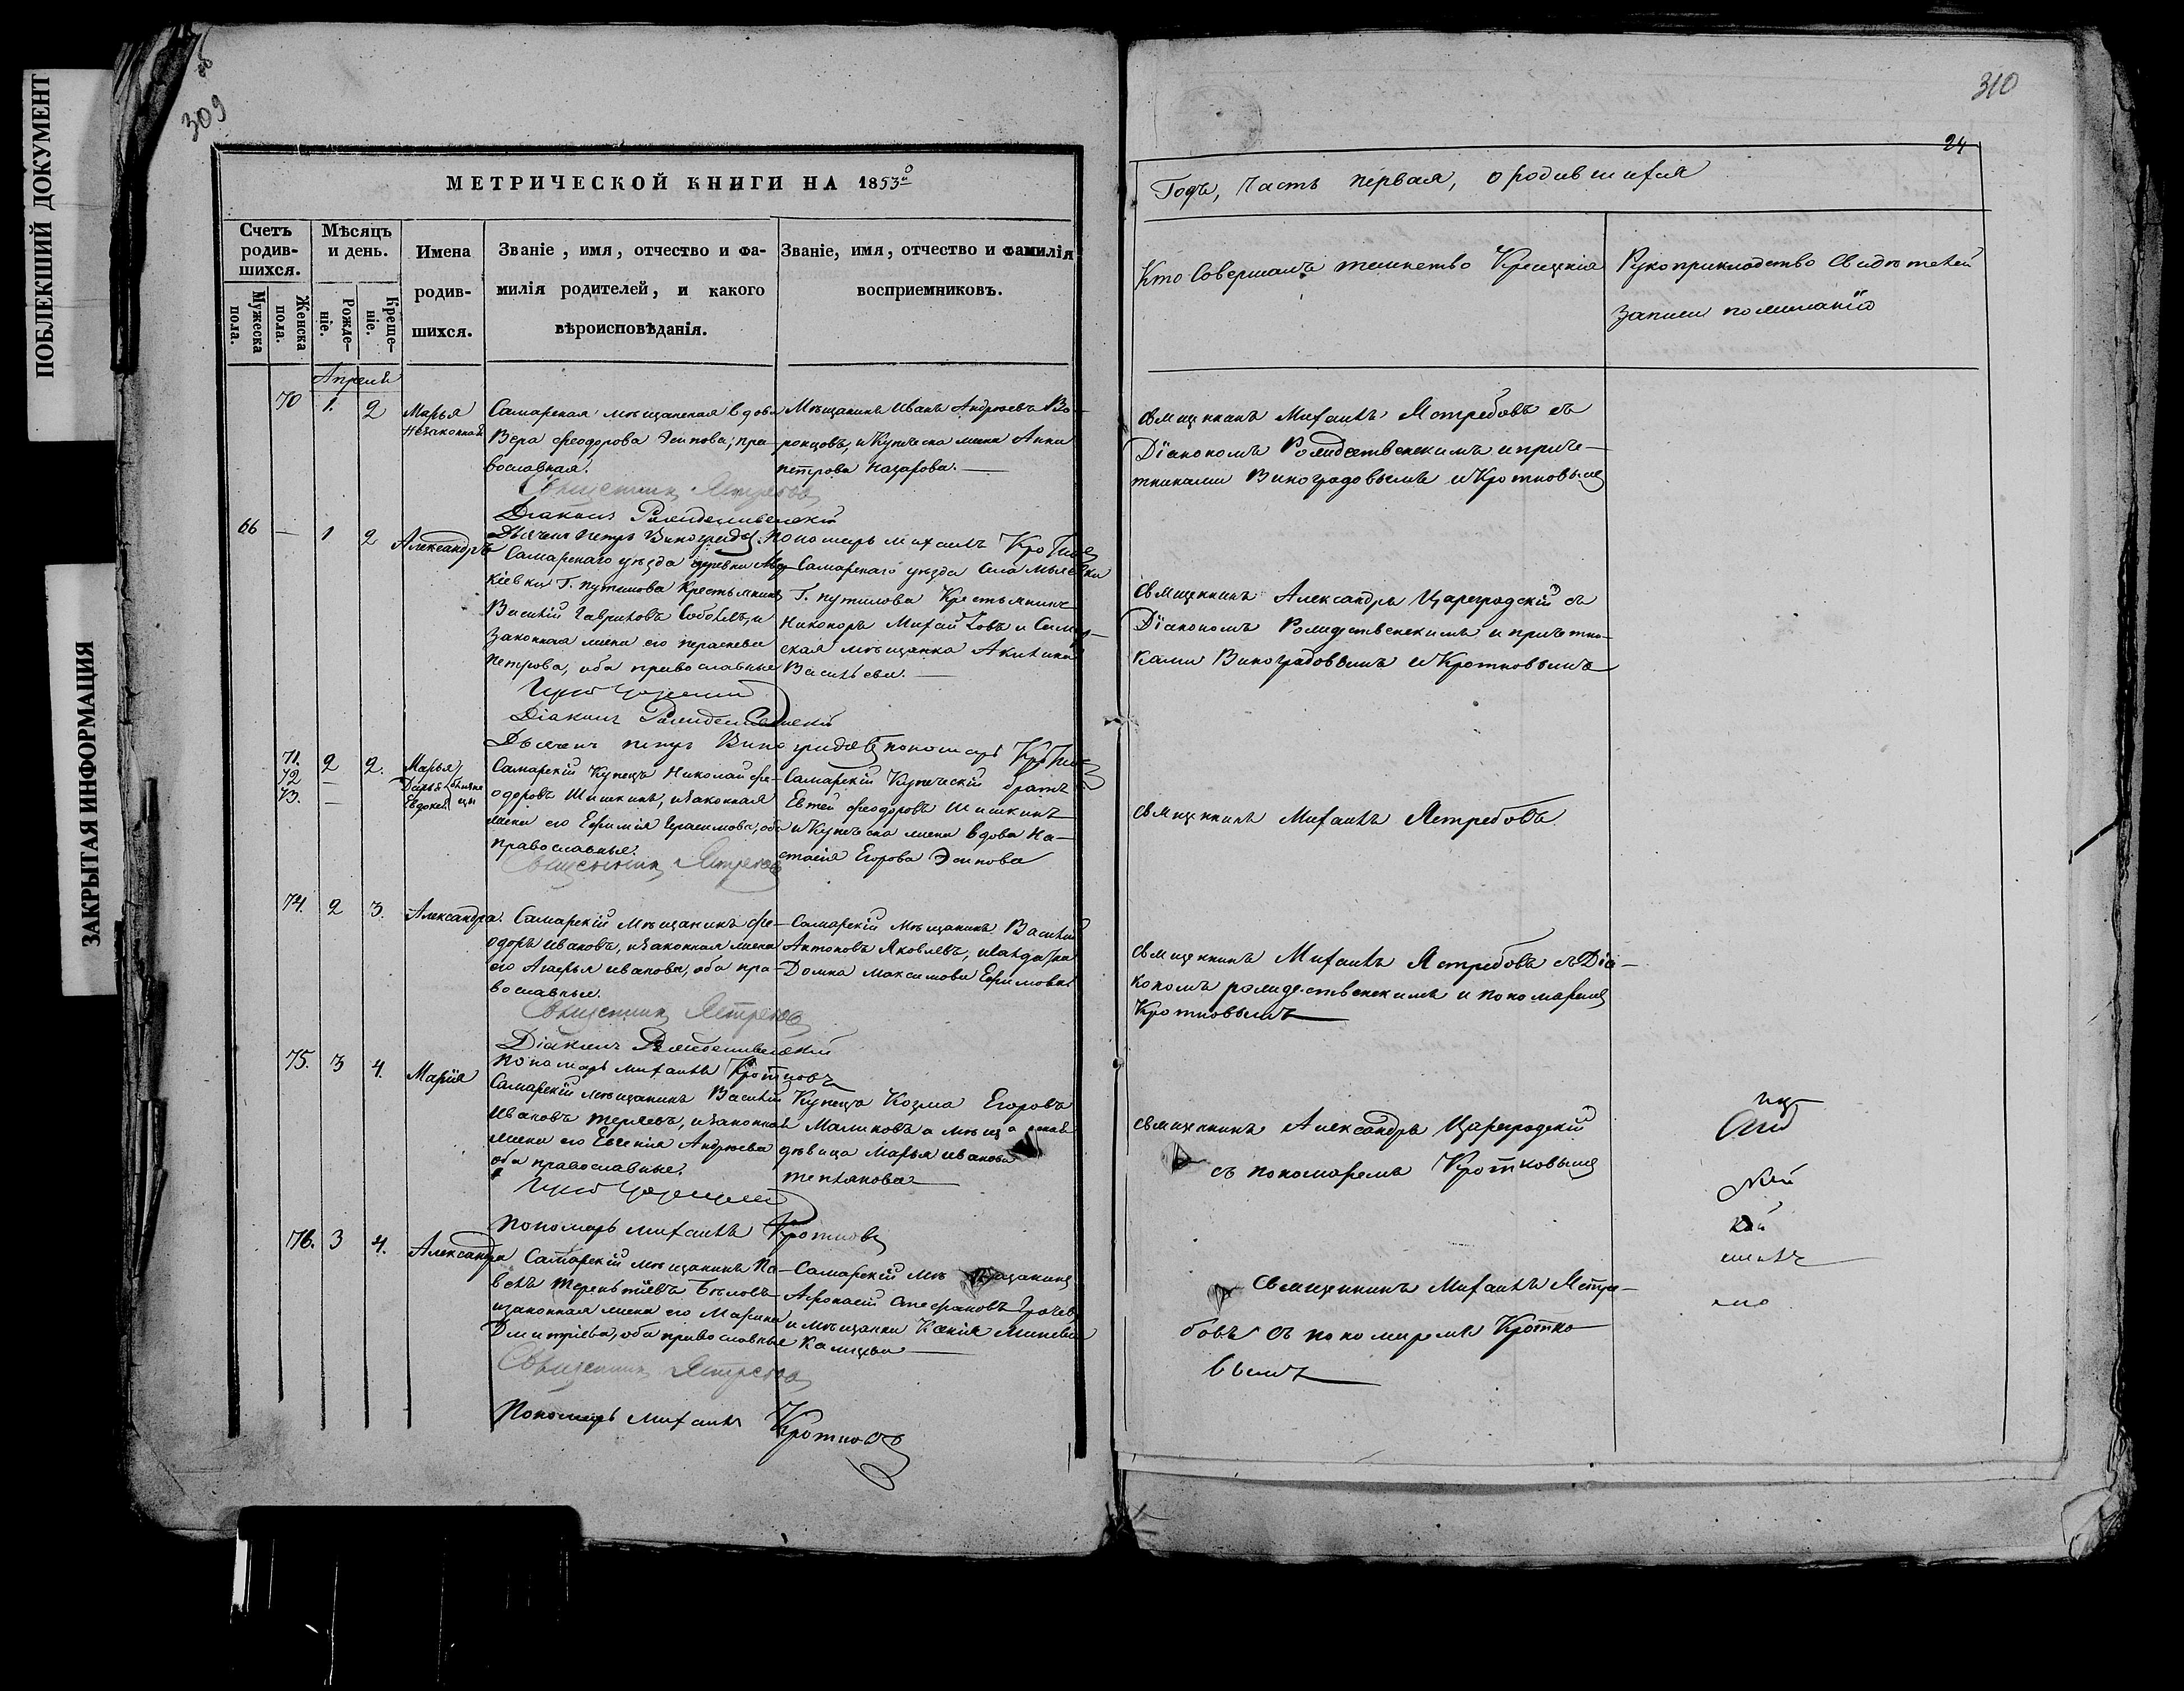 ПОБЛЕКШИЙ ДОКУМЕНТ
ЗАКРЫТАЯ ИНФОРМАЦИЯ
309
МЕТРИЧЕСКОЙ КНИГИ НА 1853й
Счетъ родив-шихся.
Мужеска пола.
Женска пола.
Мѣсяцъ и день.
Рожде-ніе.
Креще-ніе.
Имена
родив-
шихся.
Званіе, имя, отчество и фа-
милія родителей, и какого
вѣроисповѣданія.
Званіе, имя, отчество и фамилія
восприемниковъ.
Апрель
70 1. 2 Марья
Незаконная
Самарская мѣщанская вдова
Вера Феодорова Осипова, пра-
вославная.
Мѣщанинъ Иванъ Андреевъ Во-
ронцовъ, и Купческа жена Анна
Петрова Назарова.
Священникъ Ястребовъ
Діаконъ Рождественскій
Дьячекъ Петръ Виноградовъ Пономарь Михаилъ Кротковъ
66 — 1 2 Александръ
Самарскаго уезда деревни
кіевки Г. Путилова Крестьянинъ
Василій Гавриловъ и
законная жена его Парасковья
Петрова, оба православные
Самарскаго уезда Села
Г. Путилова Крестьянинъ
Никоноръ Михайловъ и Самар-
ская мѣщанка Акилина
Васильева.
Діаконъ Рождественскій
Дьячекъ Петръ Виноградовъ Пономарь Кротковъ
71. 2 2. Марья
72 — Дарья близне
73. — Евдокея цы
Самарскій Купецъ Николай Фе-
одоровъ Шишкинъ, и законная
жена его Ефимія Герасимова, оба
православные.
Самарскій Купеческій братъ
Евтей Феодоровъ Шишкинъ
и Купческа жена вдова На-
стасія Егорова Осипова
Священникъ Ястребовъ
74. 2 3. Александра.
Самарскій Мѣщанинъ Фе-
одоръ Ивановъ, и законная жена
его Агафья Иванова, оба пра-
вославные.
Самарскій Мѣщанинъ Василій
Антоновъ Яковлевъ, и
Домна Максимова Ефимова
Священникъ Ястребовъ
Діаконъ Рождественскій
Пономарь Михаилъ Кротковъ
75. 3 4. Марія
Самарскій мѣщанинъ Василій
Ивановъ, и законная
жена его Евгенія Андреева
оба православные.
Купецъ Козма Егоровъ
Малиновъ а мѣщанская
дѣвица Марья Иванова
Пономарь Михаилъ Кротковъ
76. 3 4. Александра
Самарскій мѣщанинъ Па-
велъ Терентіевъ Бѣловъ
и законная жена его Марина
Дмитріева, оба православные
Самарскій Мѣщанинъ
Афонасій Стефановъ
и мѣщанка Ксенія
Священникъ Ястребовъ
Пономарь Михаилъ Кротковъ
310
24
Годъ, часть первая, о родившихся
Кто Совершалъ таинство Крещенія
Рукоприкладство Свидѣтелей
записи по желанію
Священникъ Михаилъ Ястребовъ съ
Діакономъ Рождественскимъ и приче-
тниками Виноградовымъ и Кротковымъ
Священникъ Александръ Цареградскій съ
Діакономъ Рождественскимъ и причетни-
ками Виноградовымъ и Кротковымъ
Священникъ Михаилъ Ястребовъ
Священникъ Михаилъ Ястребовъ съ Діа-
кономъ рождественскимъ и пономаремъ
Кротковымъ
Священникъ Александръ Цареградскій
съ пономаремъ Кротковымъ
Священникъ Михаилъ Ястре-
бовъ съ пономаремъ Кротко-
вымъ